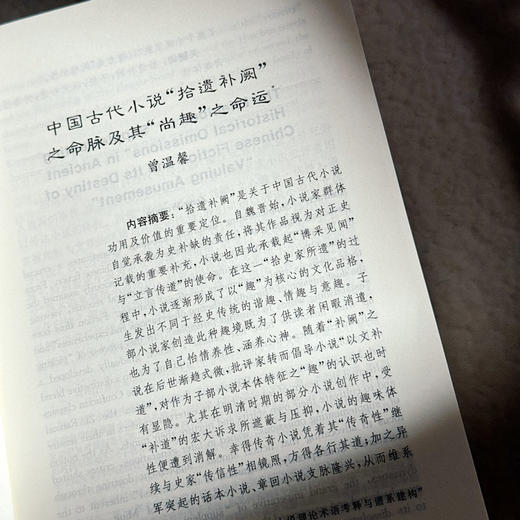 中国古代小说“拾遗补阙”
之命脉及其“尚趣”之命运
曾温馨
内容摘要：“拾遗补阙”是关于中国古代小说
功用及价值的重要定位。自魏晋始，小说家群体
自觉承袭为史补缺的责任，将其作品视为对正史
记载的重要补充，小说也因此承载起“博采见闻”
与“立言传道”的使命。在这一“拾史家所遗”的过
程中，小说逐渐形成了以“趣”为核心的文化品格，
生发出不同于经史传统的谐趣、情趣与意趣。子
部小说家创造此种趣境既为了供读者闲暇消遣，
也为了自己怡情养性、涵养心神。随着“补阙”之
说在后世渐趋式微，批评家转而倡导小说“以文补
道”，对作为子部小说本体特征之“趣”的认识也时
有显隐。尤其在明清时期的部分小说创作中，受
“补道”的宏大诉求所遮蔽与压抑，小说的趣味体
性便遭到消解。幸得传奇小说凭着其“传奇性”继
续与史家“传信性”相镜照，方得各行其道，加之异
军突起的话本小说、章回小说支脉隆兴，从而维系
说理论术语考释与谱系建构”